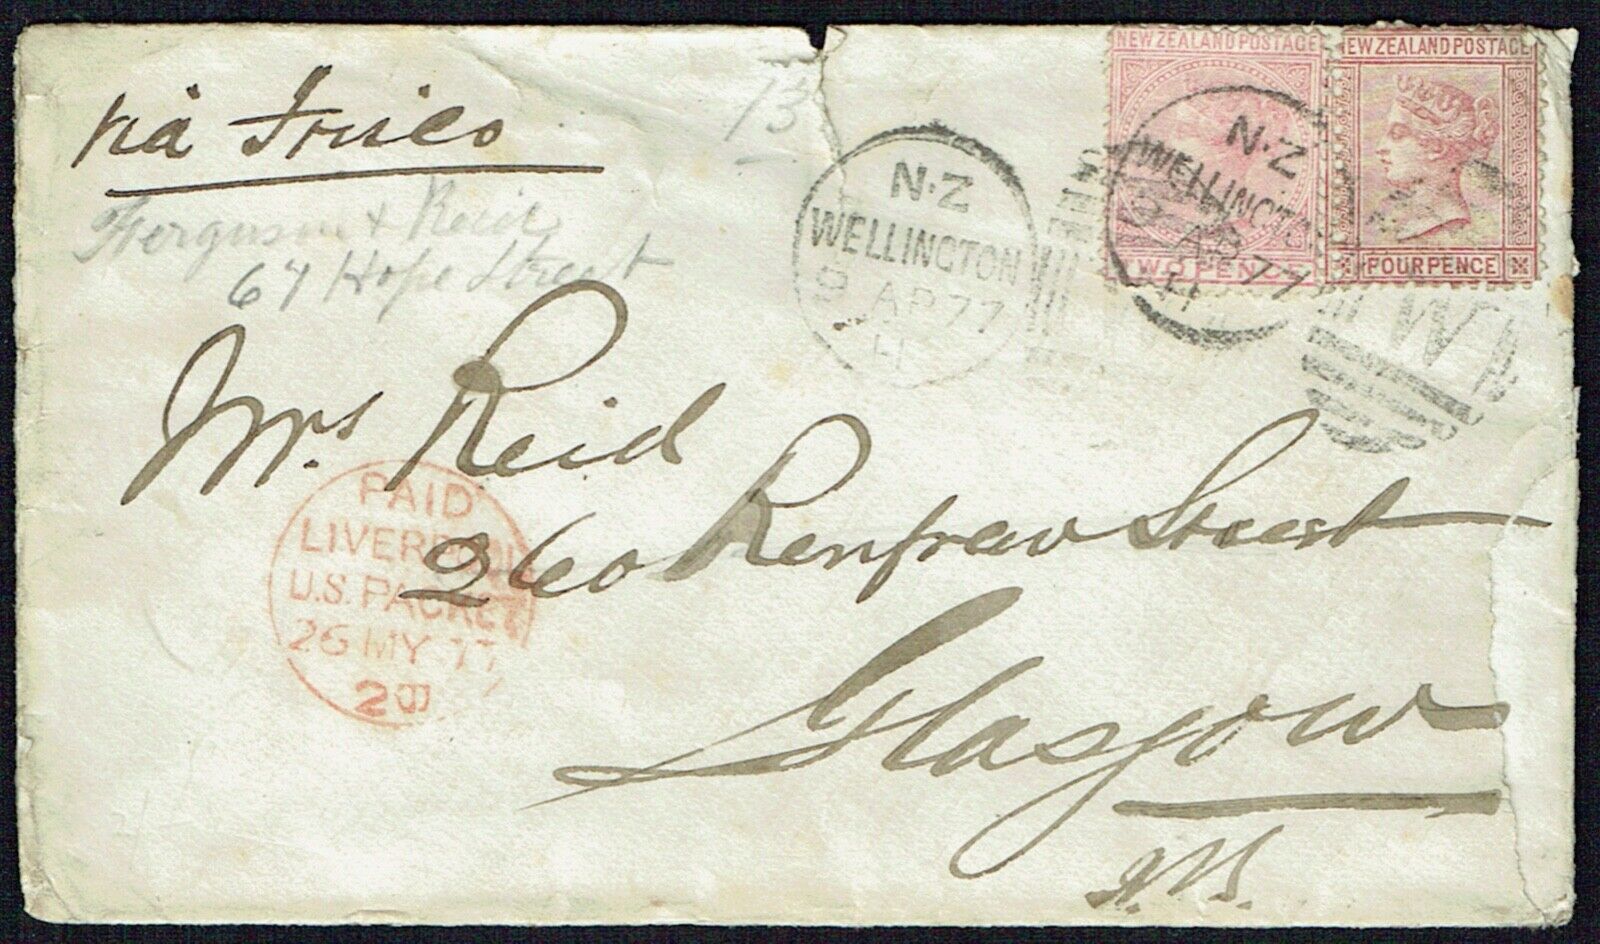 via Frisco
73
Ferguson & Reid
67 Hope Street
NEW ZEALAND POSTAGE
TWO PENCE
EW ZEALAND POSTAGE
FOURPENCE
N·Z
WELLINGTON
9 AP 77
N·Z
WELLINGTON
9 AP 77
W
Mrs Reid
260 Renfrew Street
Glasgow
N.B.
PAID
LIVERPOOL
U.S. PACKET
26 MY 77